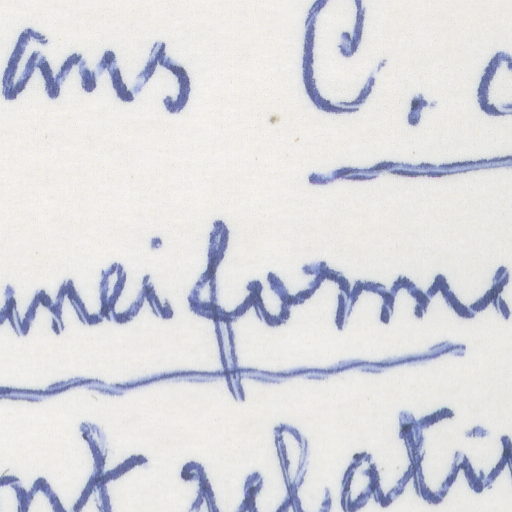 ans C. c
uneiforme
ont relativ